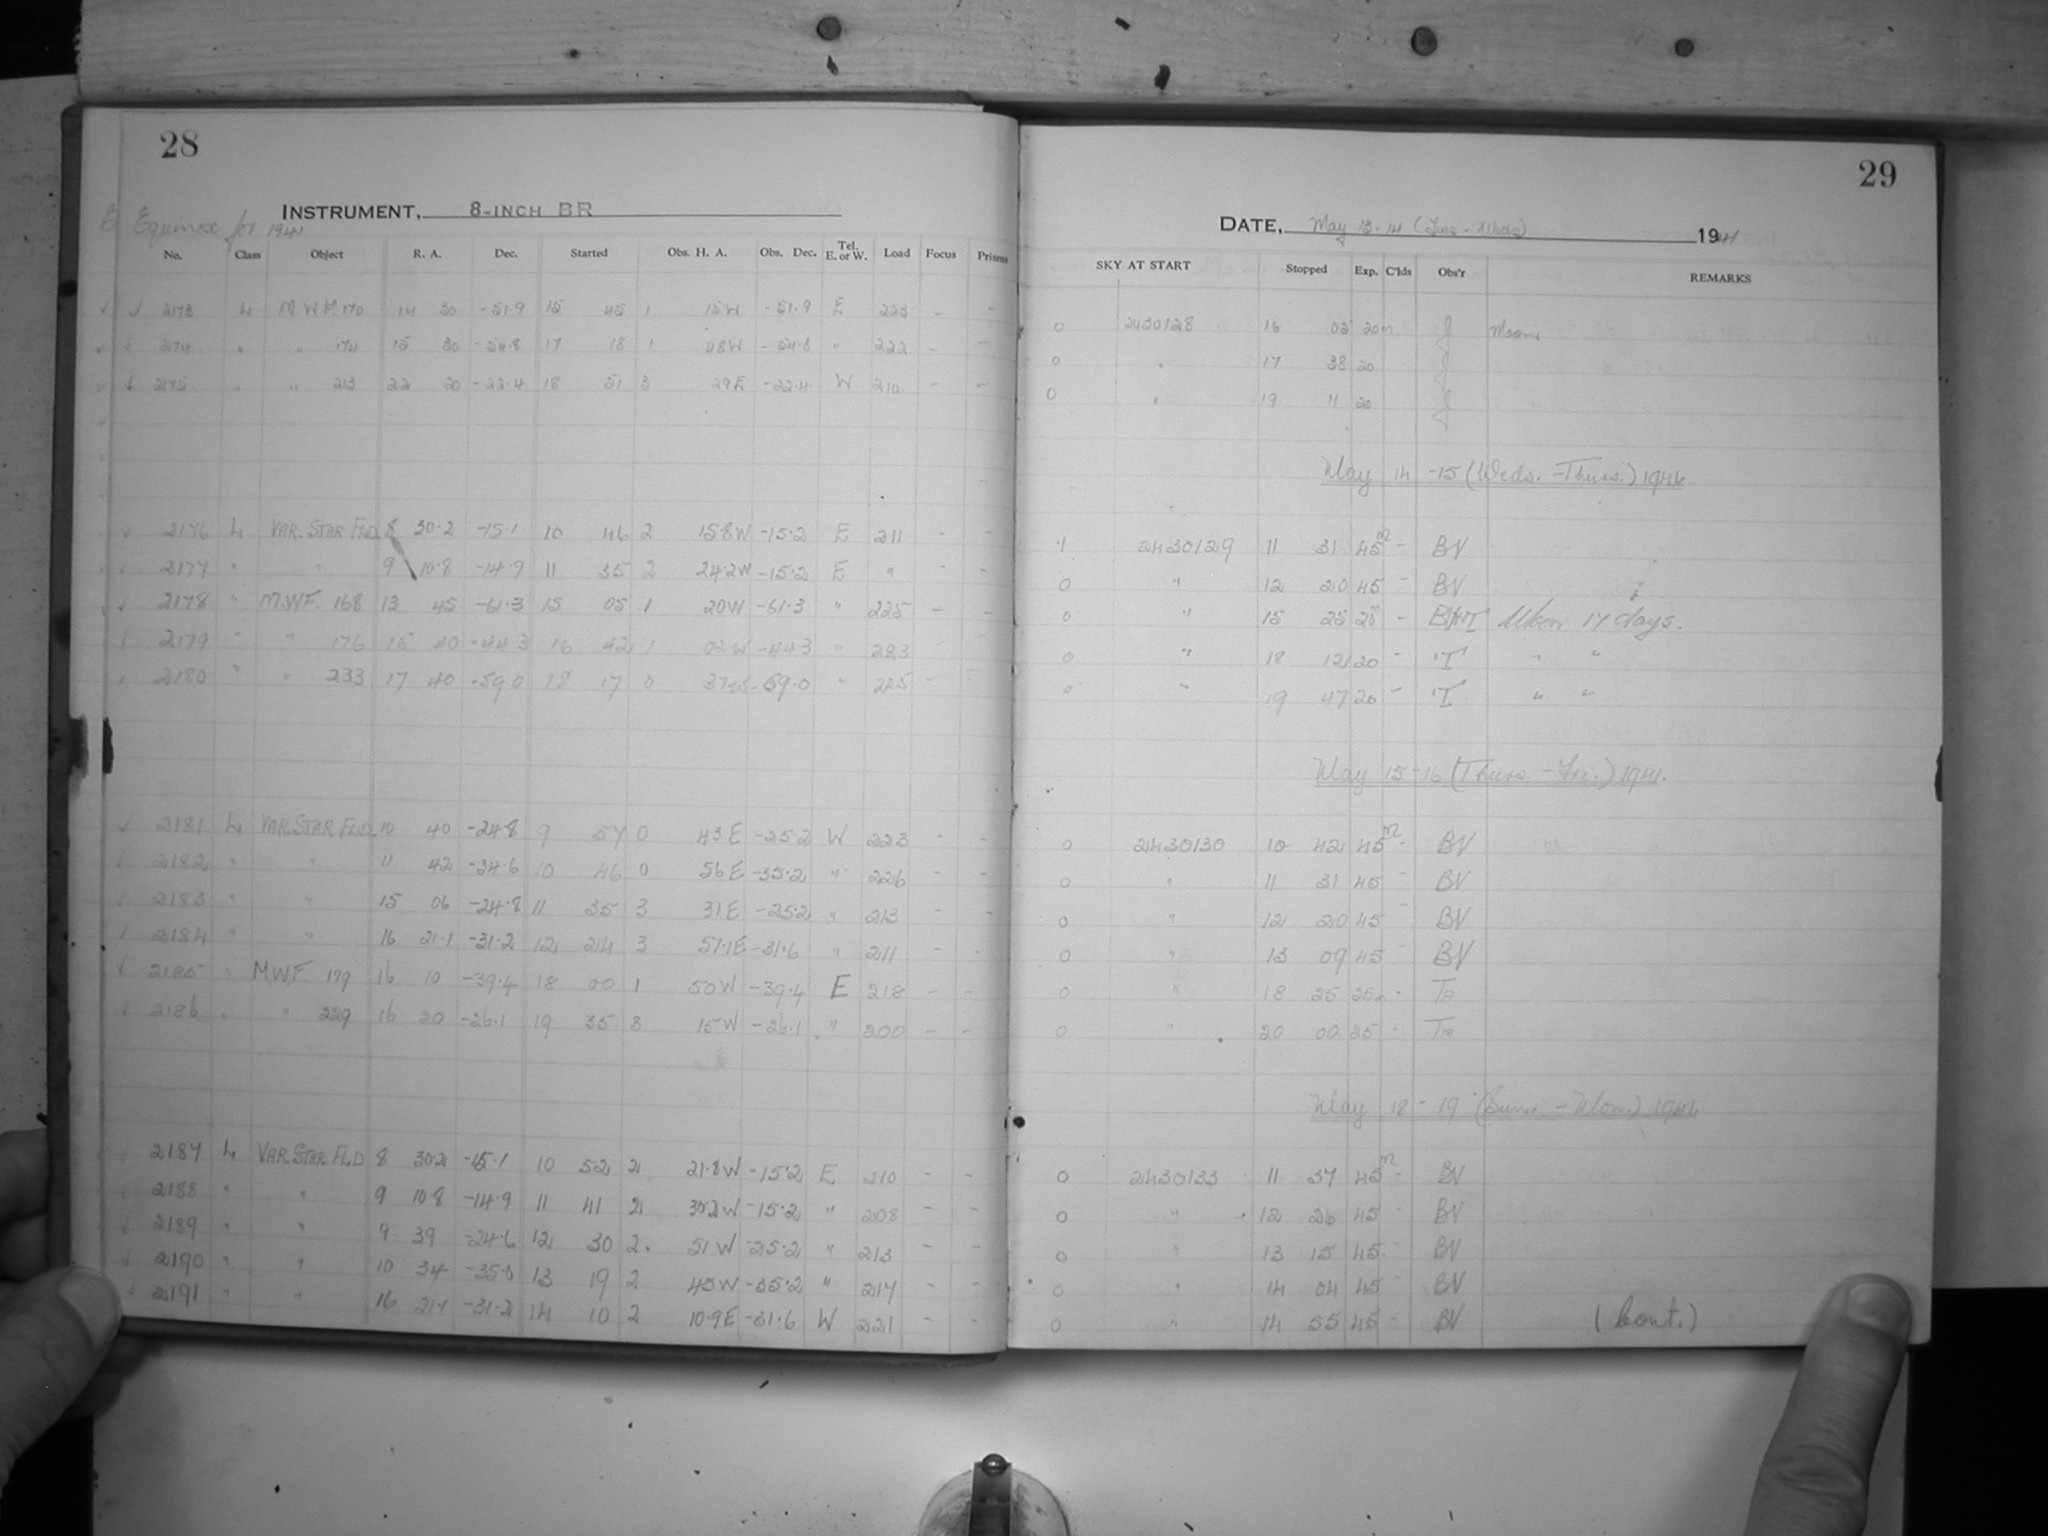 28
INSTRUMENT, 8-INCH BR
Equinox for 1941
No. Class Object R. A. Dec. Started Obs. H. A. Obs. Dec. Tel. E. or W. Load Focus Prisms
2173 L M.W.F. 170 14 30 -51.9 15 45 1 15W -51.9 E 223 - -
2174 " " 174 15 30 -54.8 17 18 1 -54.8 " 222 - -
2175 " " 213 22 20 -22.4 18 51 3 29E -22.4 W 210 - -
2176 L VAR. STAR FLD. 8 30.2 -15.1 10 46 2 15.8W -15.2 E 211 - -
2177 " " 9 10.8 -14.9 11 35 2 24.2W -15.2 E " - -
2178 " M.W.F. 168 13 45 -61.3 15 05 1 20W -61.3 " 225 - -
2179 " " 176 15 40 -44.3 16 42 1 -44.3 " 223 - -
2180 " " 233 17 40 -59.0 18 17 0 -59.0 " 225 - -
2181 L VAR. STAR FLD. 10 40 -24.8 9 57 0 43E -25.2 W 223 - -
2182 " " 11 42 -34.6 10 46 0 56E -35.2 " 226 - -
2183 " " 15 06 -24.8 11 35 3 31E -25.2 " 213 - -
2184 " " 16 21.1 -31.2 12 24 3 51.1E -31.6 " 211 - -
2185 " M.W.F. 179 16 10 -39.4 18 00 1 50W -39.4 E 218 - -
2186 " " 229 16 20 -26.1 19 35 3 15W -26.1 " 200 - -
2187 L VAR. STAR FLD 8 30.2 -15.1 10 52 2 21.8W -15.2 E 210 - -
2188 " " 9 10.8 -14.9 11 41 2 30.2W -15.2 " 208 - -
2189 " " 9 39 -24.6 12 30 2 51W -25.2 " 213 - -
2190 " " 10 34 13 19 2 -35.2 " 217 - -
2191 " " 16 21.1 -31.2 14 10 2 10.9E -31.6 W 221 - -
29
DATE, May 13-14 (Tues - Weds) 1941
SKY AT START Stopped Exp. C'lds Obs'r REMARKS
0 2430128 16 05 20m J Moon
0 " 17 38 20 J
0 " 19 11 20 J
May 14-15 (Weds. - Thurs.) 1941
.1 2430129 11 31 45m - BV
0 " 12 20 45 - BV
0 " 15 25 20 - Moon 17 days.
0 " 18 12 20 - T " "
0 " 19 47 20 - T " "
May 15-16 (Thurs. - Fri.) 1941.
0 2430130 10 42 45m - BV
0 " 11 31 45 - BV
0 " 12 20 45 - BV
0 " 13 09 45 - BV
0 " 18 25 25m -
0 " 20 00 25 -
May 18-19 (Sun. - Mon.) 1941
0 2430133 11 37 45m - BV
0 " 12 26 45 - BV
0 " 13 15 45 - BV
0 " 14 04 45 - BV
0 " 14 55 45 - BV (Cont.)